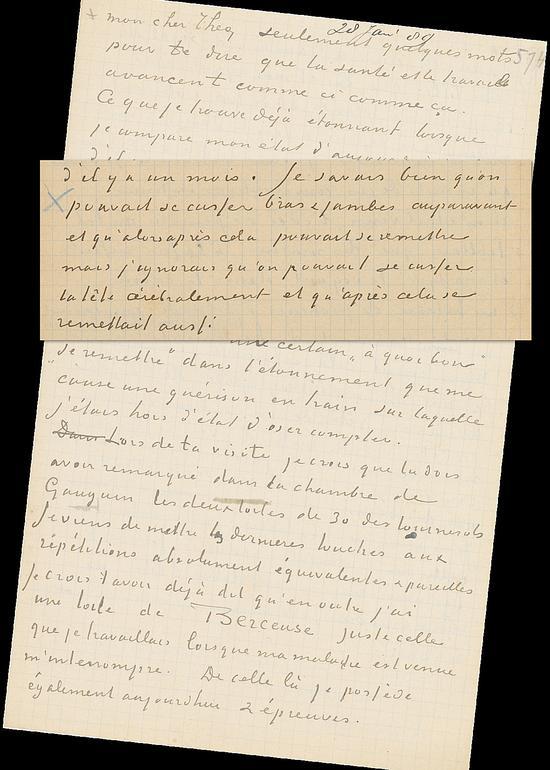 28 Jan 89
mon cher Theo, seulement quelques mots
pour te dire que la santé et le travail
avancent comme ci comme ça.
Ce que je trouve déjà étonnant lorsque
je compare mon état d'aujourd'hui
d'il y a un mois. Je savais bien qu'on
pouvait se casser bras & jambes auparavant
et qu'alors après cela pouvait se remettre
mais j'ignorais qu'on pouvait se casser
la tête cérébralement et qu'après cela se
remettait aussi.
une certain „à quoi bon
se remettre" dans l'étonnement que me
cause une guérison en train sur laquelle
j'étais hors d'état d'oser compter.
Dans Lors de ta visite je crois que tu dois
avoir remarqué dans la chambre de
Gauguin les deux toiles de 30 des tournesols
Je viens de mettre les dernieres touches aux
répétitions absolument équivalentes & pareilles
Je crois t'avoir déjà dit qu'en outre j'ai
une toile de Berceuse juste celle
que je travaillais lorsque ma maladie est venue
m'interrompre. De celle là je possède
également aujourdhui 2 épreuves.